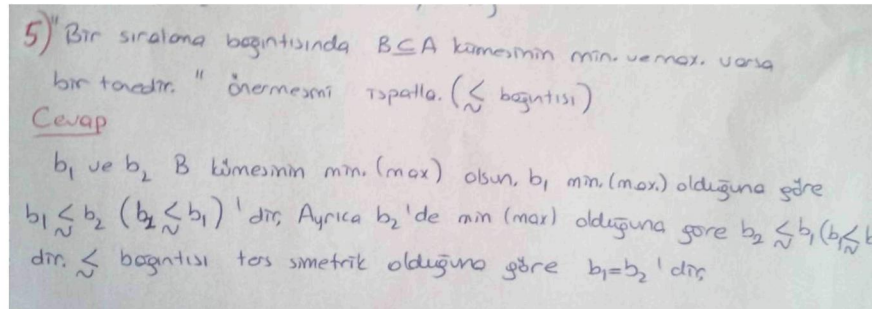 5) "Bir sıralama bağıntısında B⊆A kümesinin min. ve max. varsa
bir tanedir." önermesini ispatla. (≲ bağıntısı)
Cevap
b₁ ve b₂ B kümesinin min. (max) olsun, b₁ min. (max.) olduğuna göre
b₁ ≲ b₂ (b₂ ≲ b₁) 'dir, Ayrıca b₂'de min (max) olduğuna göre b₂ ≲ b₁ (b₁ ≲ b
dir. ≲ bağıntısı ters simetrik olduğuna göre b₁=b₂ 'dir,